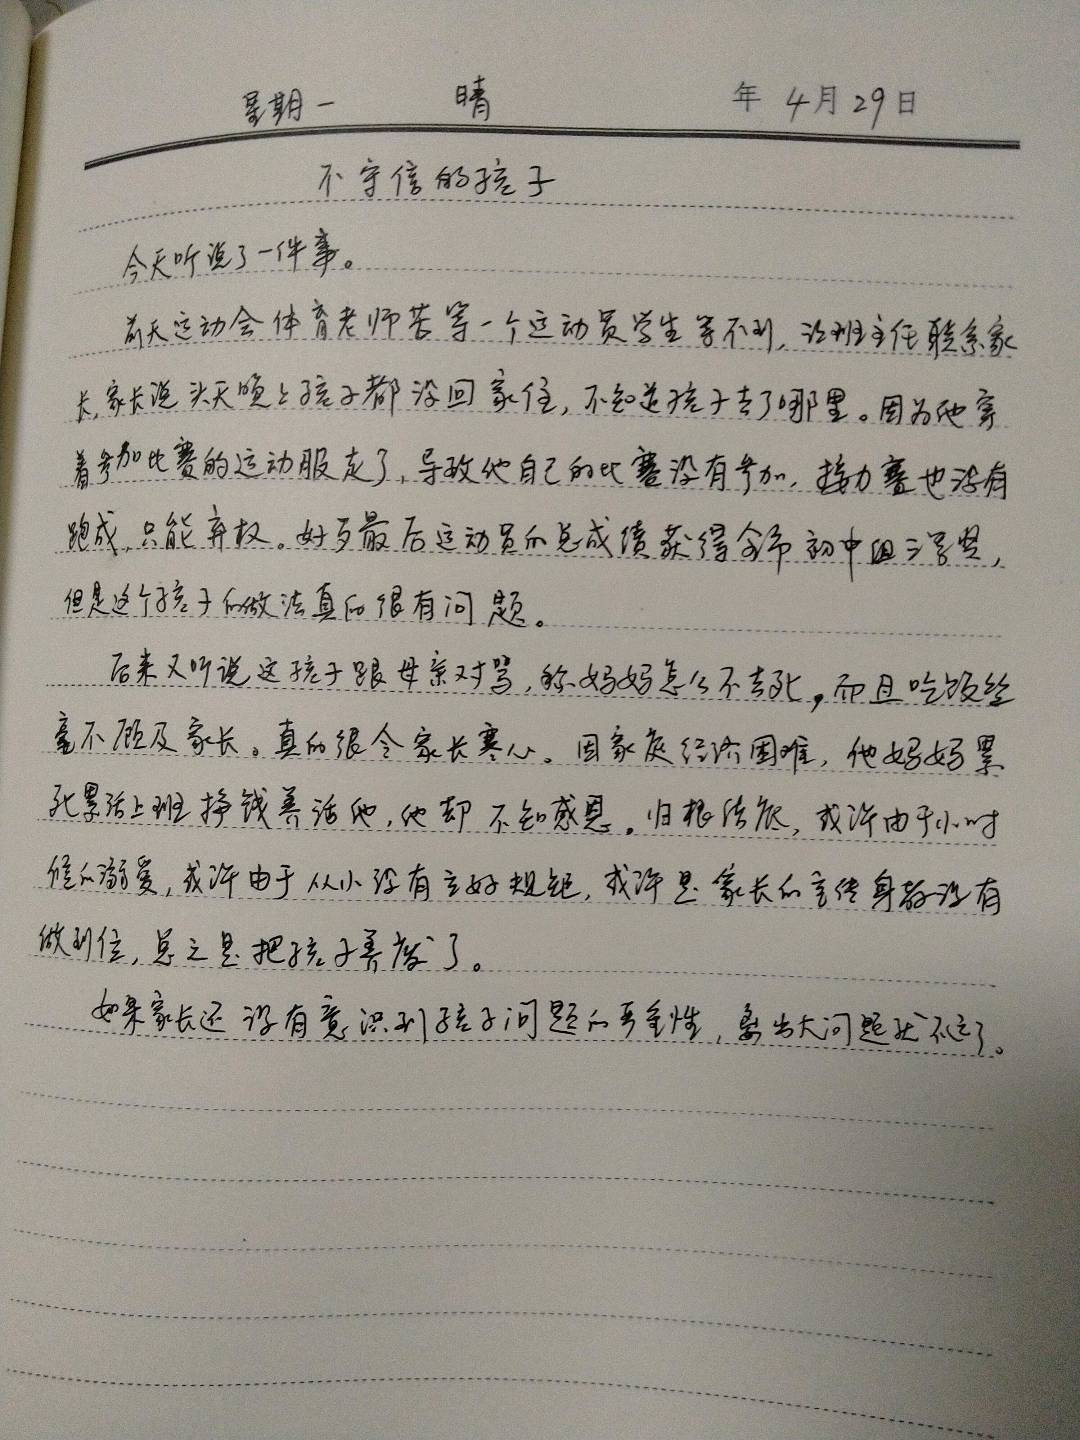 星期一 晴 年 4月29日
不守信的孩子
今天听说了一件事。
前天运动会体育老师苦等一个运动员学生等不到,让班主任联系家
长,家长说头天晚上孩子都没回家住,不知道孩子去了哪里。因为他穿
着参加比赛的运动服走了,导致他自己的比赛没有参加,接力赛也没有
跑成,只能弃权。好歹最后运动员的总成绩获得全市初中组三等奖,
但是这个孩子的做法真的很有问题。
后来又听说这孩子跟母亲对骂,称妈妈怎么不去死,而且吃饭丝
毫不顾及家长。真的很令家长寒心。因家庭经济困难,他妈妈累
死累活上班挣钱养活他,他却不知感恩。归根结底,或许由于小时
候的溺爱,或许由于从小没有立好规矩,或许是家长的言传身教没有
做到位,总之是把孩子养废了。
如果家长还没有意识到孩子问题的严重性,离出大问题就不远了。